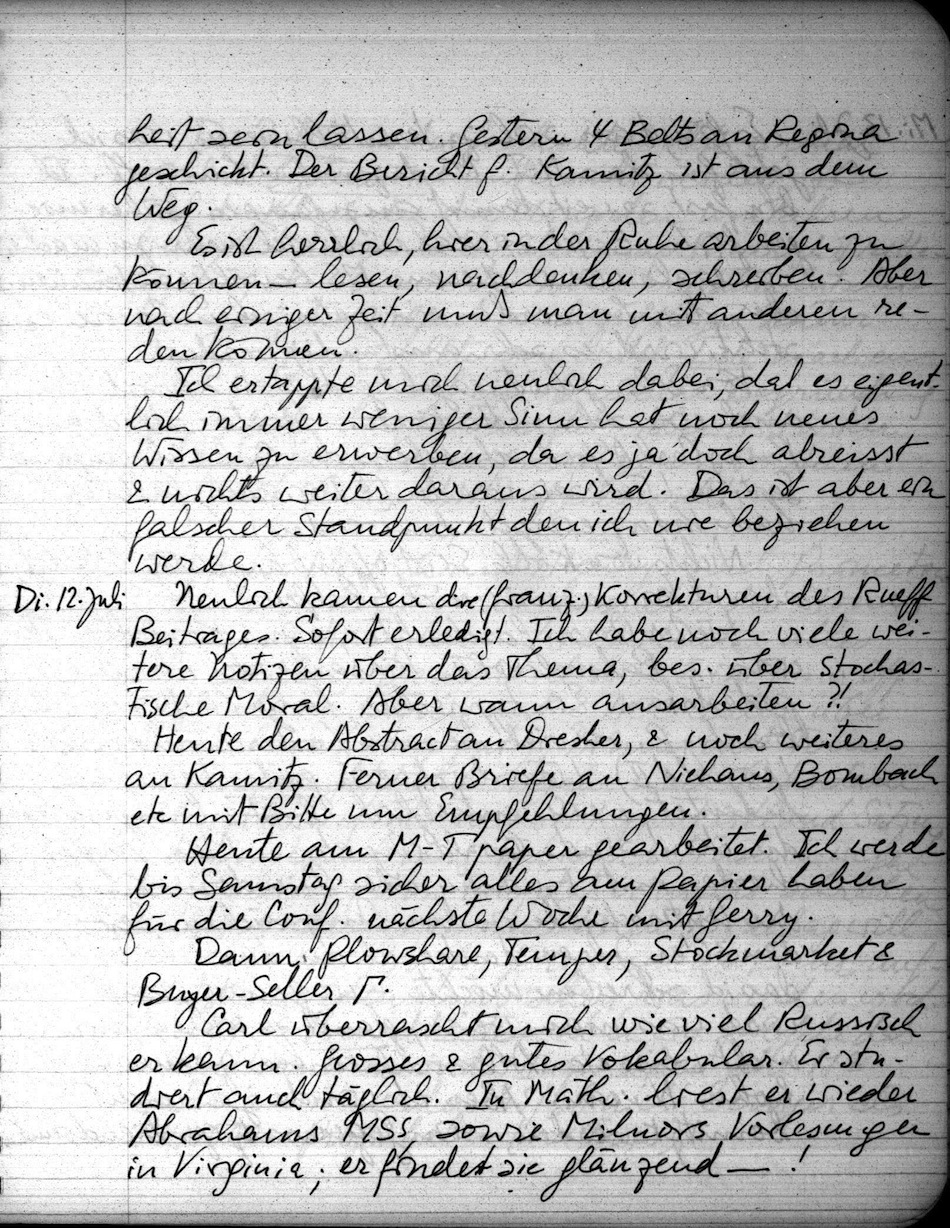 heit sein lassen. Gestern 4 Belts an Regina
geschickt. Der Bericht f. Kamitz ist aus dem
Weg.
Es ist herrlich, hier in der Ruhe arbeiten zu
können — lesen, nachdenken, schreiben. Aber
nach einiger Zeit muß man mit anderen re-
den können.
Ich ertappte mich neulich dabei, daß es eigent-
lich immer weniger Sinn hat noch neues
Wissen zu erwerben, da es ja doch abreisst
& nichts weiter daraus wird. Das ist aber ein
falscher Standpunkt den ich nie beziehen
werde.
Di. 12. Juli Neulich kamen die (franz.) Korrekturen des Rueff
Beitrages. Sofort erledigt. Ich habe noch viele wei-
tere Notizen über das Thema, bes. über Stochas-
tische Moral. Aber wann ausarbeiten ?!
Heute den Abstract an Dresher, & noch weiteres
an Kamitz. Ferner Briefe an Niehans, Bombach
etc mit Bitte um Empfehlungen.
Heute am M-T paper gearbeitet. Ich werde
bis Samstag sicher alles am Papier haben
für die Conf. nächste Woche mit Gerry.
Dann Plowshare, Temper, Stockmarket &
Buyer-Seller Γ.
Carl überrascht mich wie viel Russisch
er kann. Grosses & gutes Vokabular. Er stu-
diert auch täglich. In Math. liest er wieder
Abrahams MSS, sowie Milnors Vorlesungen
in Virginia; er findet sie glänzend — !